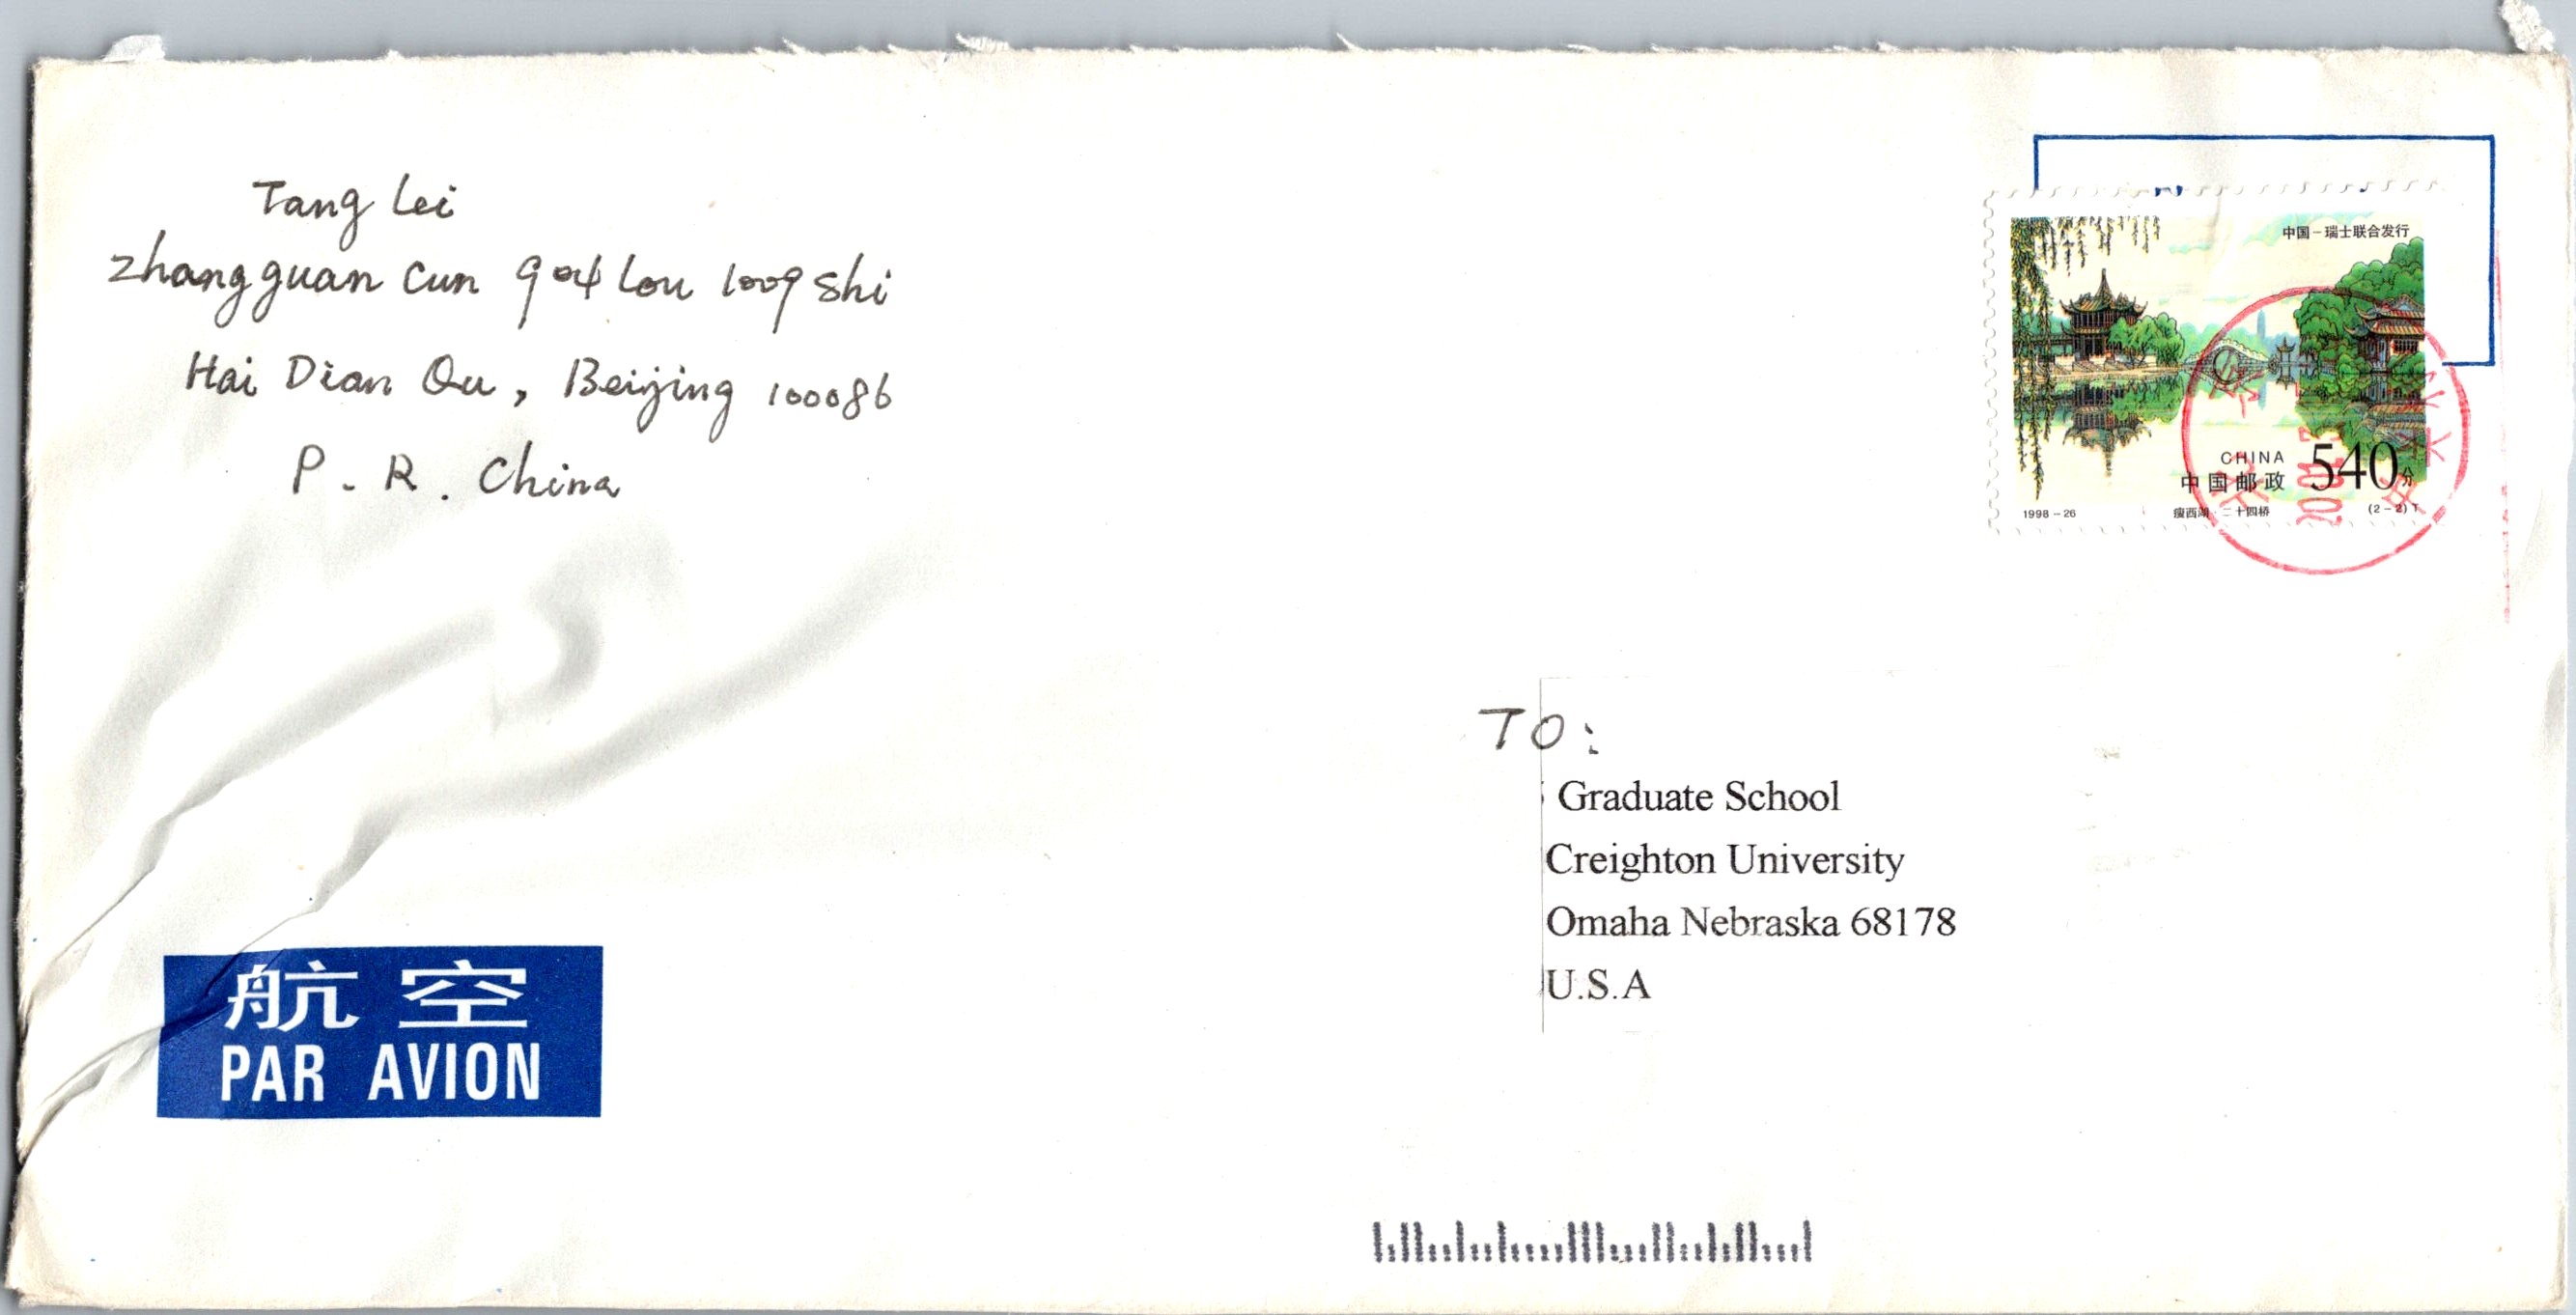 Tang Lei
Zhang guan Cun 904 Lou 1009 Shi
Hai Dian Qu, Beijing 100086
P. R. China
中国-瑞士联合发行
CHINA
中国邮政 540分
1998-26 瘦西湖·二十四桥 (2-2)T
TO:
Graduate School
Creighton University
Omaha Nebraska 68178
U.S.A
航空
PAR AVION